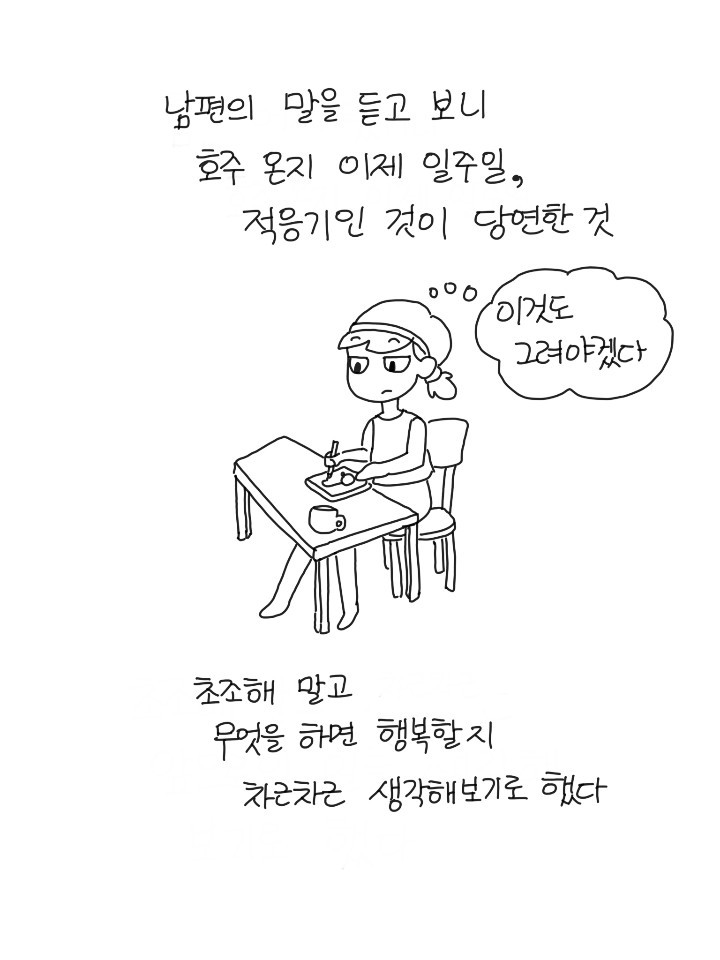 남편의 말을 듣고 보니
호주 온지 이제 일주일,
적응기인 것이 당연한 것
이것도
그려야겠다
초조해 말고
무엇을 하면 행복할지
차근차근 생각해보기로 했다